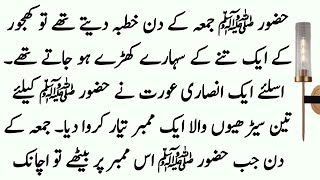 حضور ﷺ جمعہ کے دن خطبہ دیتے تھے تو کھجور
کے ایک تنے کے سہارے کھڑے ہو جاتے تھے۔
اسلئے ایک انصاری عورت نے حضور ﷺ کیلئے
تین سیڑھیوں والا ایک ممبر تیار کروا دیا۔ جمعہ کے
دن جب حضور ﷺ اس ممبر پر بیٹھے تو اچانک